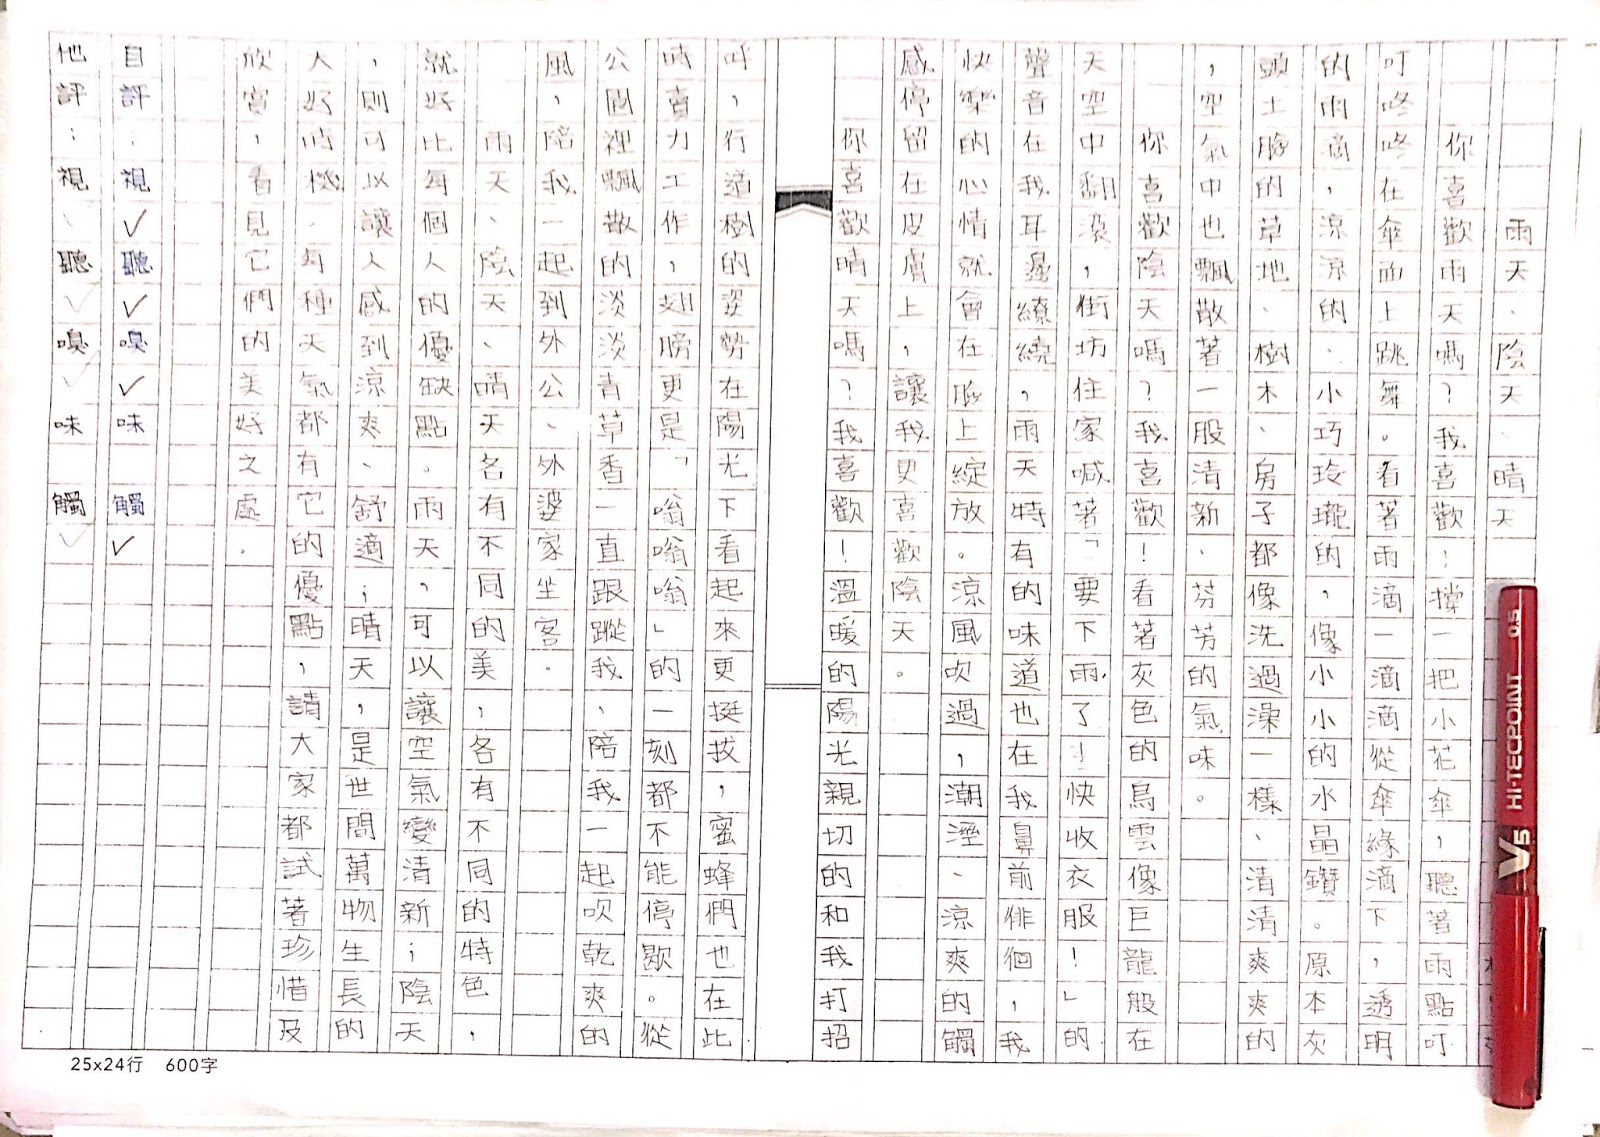 雨天、陰天、晴天
你喜歡雨天嗎？我喜歡！撐一把小花傘，聽著雨點叮
叮咚咚在傘面上跳舞。看著雨滴一滴滴從傘緣滴下，透明
的雨滴，涼涼的、小巧玲瓏的，像小小的水晶鑽。原本灰
頭土臉的草地、樹木、房子都像洗過澡一樣、清清爽爽的
，空氣中也飄散著一股清新、芬芳的氣味。
你喜歡陰天嗎？我喜歡！看著灰色的烏雲像巨龍般在
天空中翻滾，街坊住家喊著「要下雨了！快收衣服！」的
聲音在我耳邊繚繞，雨天特有的味道也在我鼻前徘徊，我
快樂的心情就會在臉上綻放。涼風吹過，潮溼、涼爽的觸
感停留在皮膚上，讓我更喜歡陰天。
你喜歡晴天嗎？我喜歡！溫暖的陽光親切的和我打招
呼，行道樹的姿勢在陽光下看起來更挺拔，蜜蜂們也在此
時賣力工作，翅膀更是「嗡嗡嗡」的一刻都不能停歇。從
公園裡飄散的淡淡青草香一直跟蹤我、陪我一起吹乾爽的
風，陪我一起到外公、外婆家坐客。
雨天、陰天、晴天各有不同的美，各有不同的特色，
就好比每個人的優缺點。雨天，可以讓空氣變清新；陰天
，則可以讓人感到涼爽、舒適；晴天，是世間萬物生長的
大好時機。每種天氣都有它的優點，請大家都試著珍惜及
欣賞，看見它們的美好之處。
自評：視✓聽✓嗅✓味 觸✓
他評：視✓聽✓嗅✓味 觸✓
25x24行 600字
HI-TECPOINT 0.5
V5